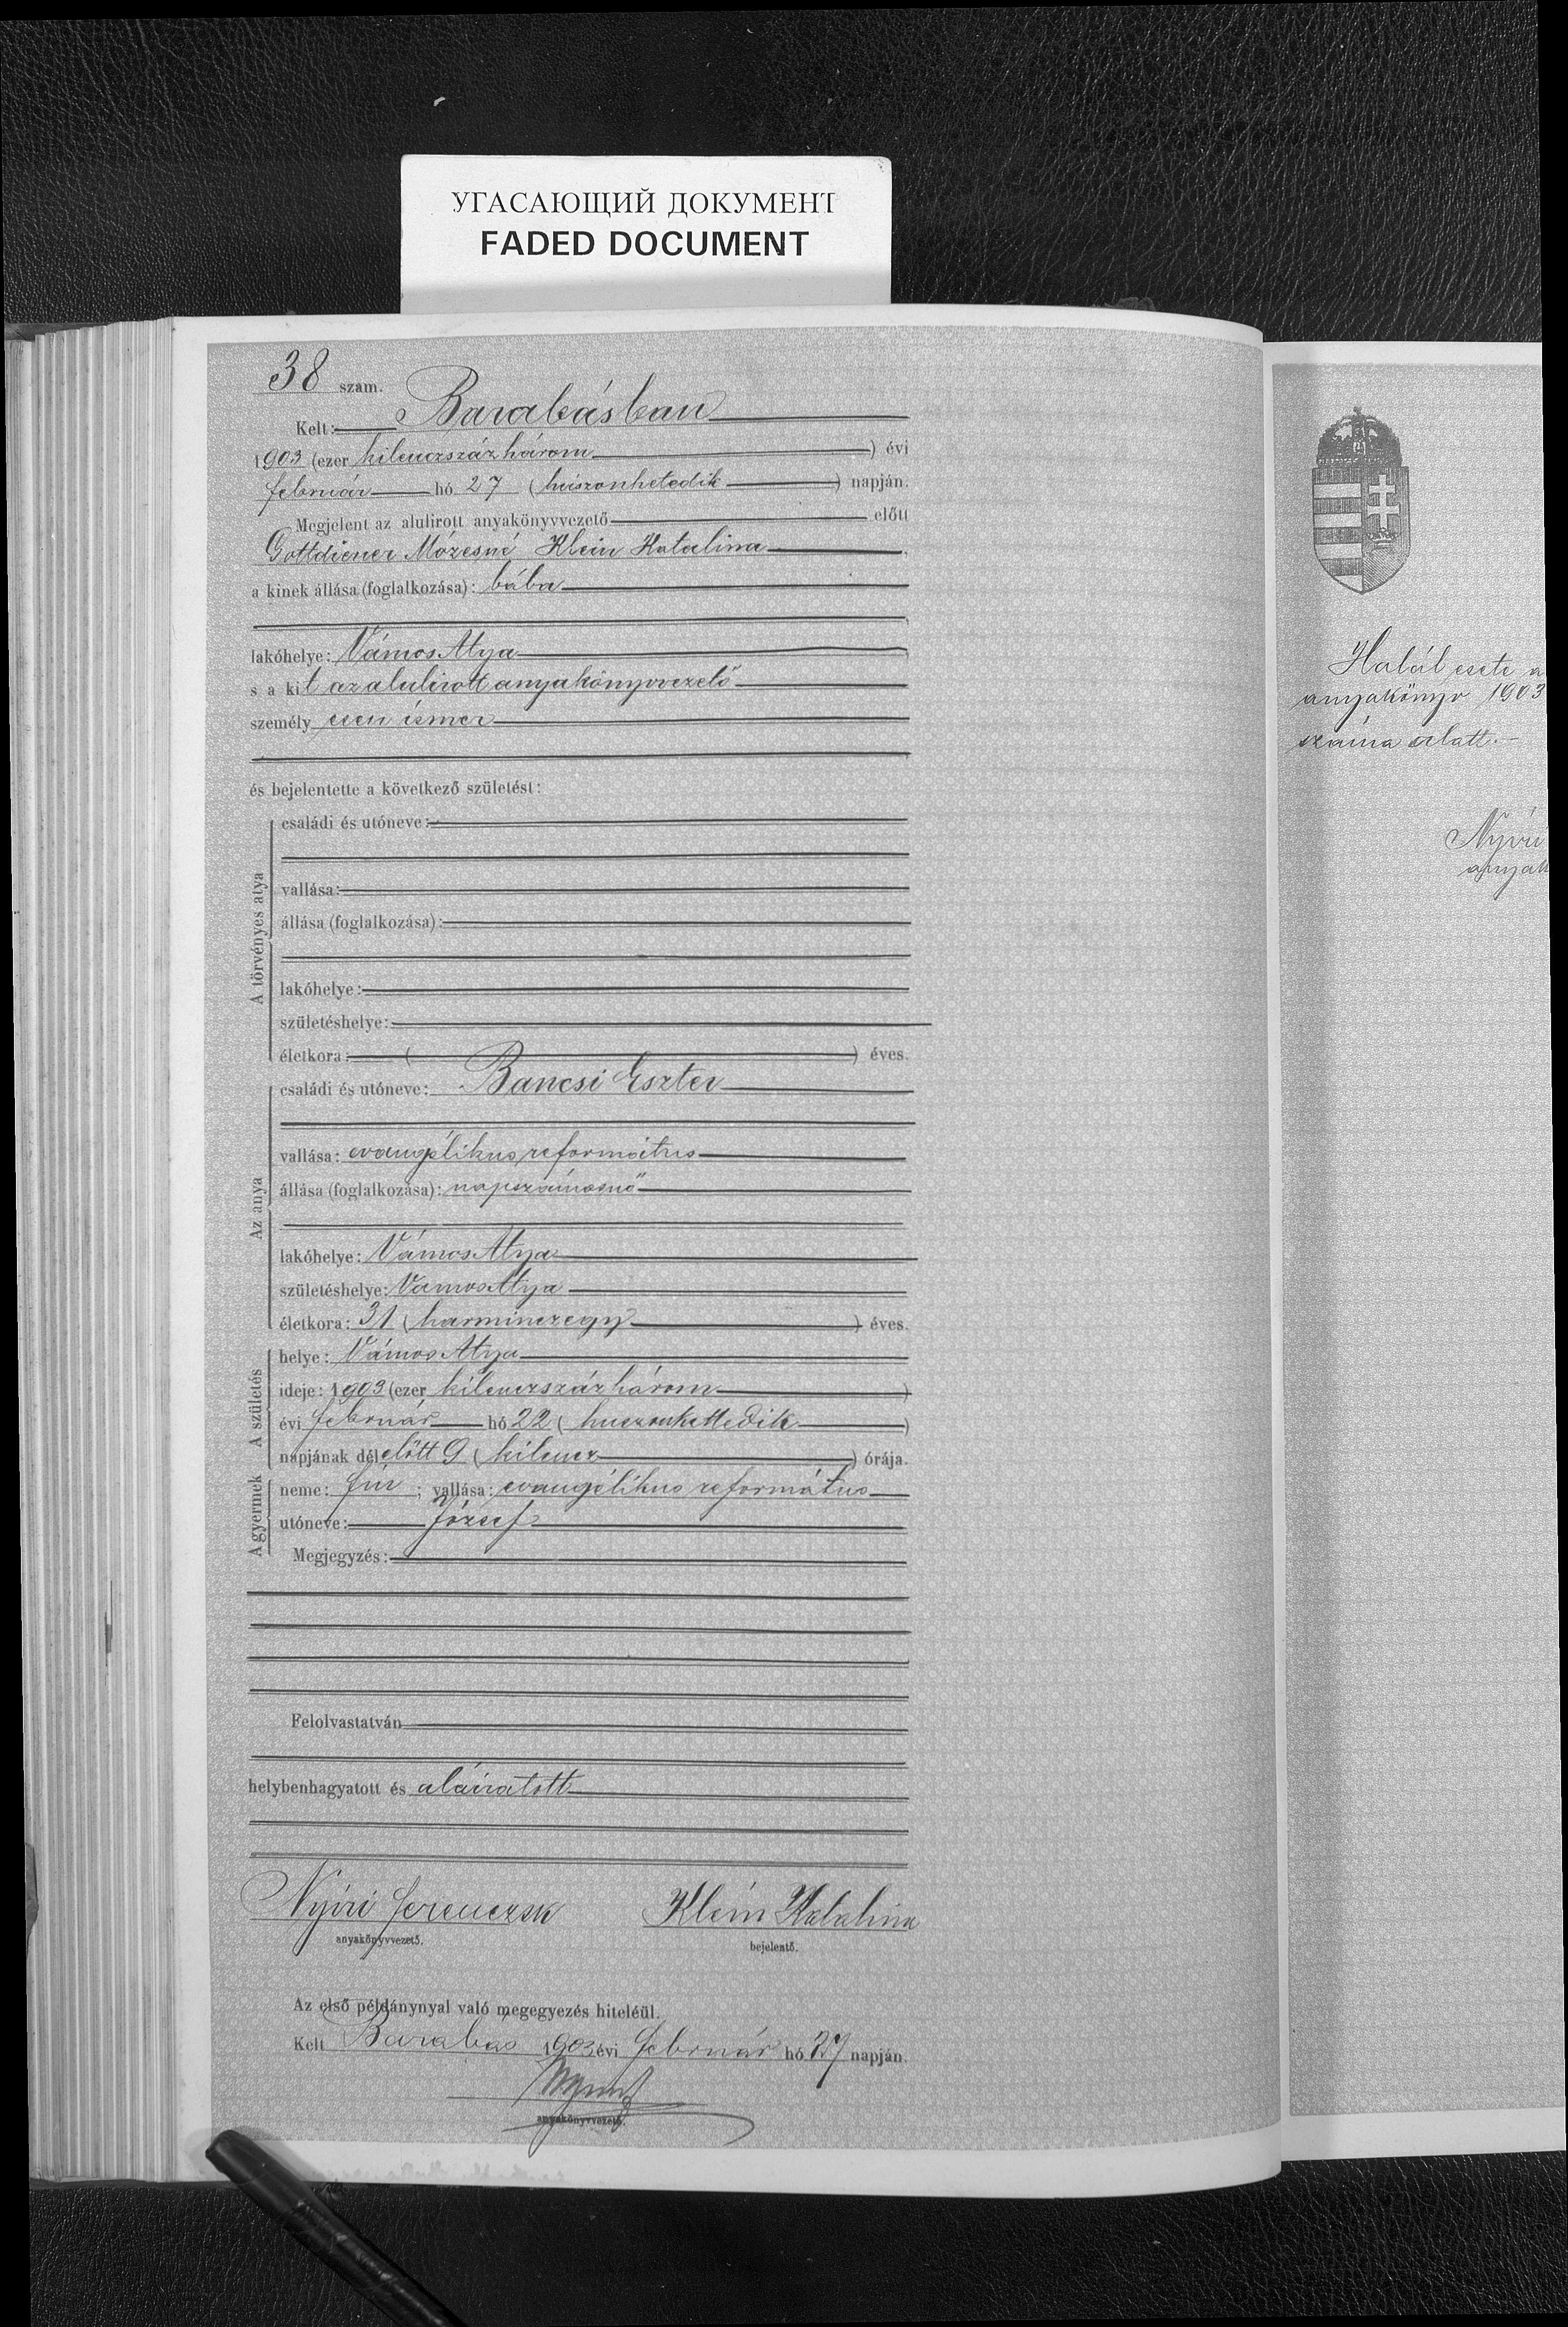 УГАСАЮЩИЙ ДОКУМЕНТ
FADED DOCUMENT
38 szam.
Kelt: Barabásban
1903 (ezer kilenczszáz három) évi
február hó 27 (húszonhetedik) napján.
Megjelent az alulirott anyakönyvvezető előtt
Gottdiener Mózesné Klein Katalina
a kinek állása (foglalkozása): bába
lakóhelye: Vámos Atya
s a kit az alulirott anyakönyvvezető
személyesen ismer
és bejelentette a következő születést:
A törvényes atya
családi és utóneve:
vallása:
állása (foglalkozása):
lakóhelye:
születéshelye:
életkora: ( ) éves.
Az anya
családi és utóneve: Bancsi Eszter
vallása: evangélikus református
állása (foglalkozása): napszámosnő
lakóhelye: Vámos Atya
születéshelye: Vámos Atya
életkora: 31 (harminczegy) éves.
A születés
helye: Vámos Atya
ideje: 1903 (ezer kilenczszáz három)
évi február hó 22 (huszonkettedik)
napjának délelőtt 9 (kilencz) órája.
A gyermek
neme: fiú; vallása: evangélikus református
utóneve: József
Megjegyzés:
Felolvastatván
helybenhagyatott és aláiratott
Nyíri Ferencz Klein Katalina
anyakönyvvezető. bejelentő.
Az első példánynyal való megegyezés hiteléül.
Kelt Barabás 1903 évi február hó 27 napján.
anyakönyvvezető.
Halál esete a
anyakönyv 1903
száma alatt.
Nyíri
anyak